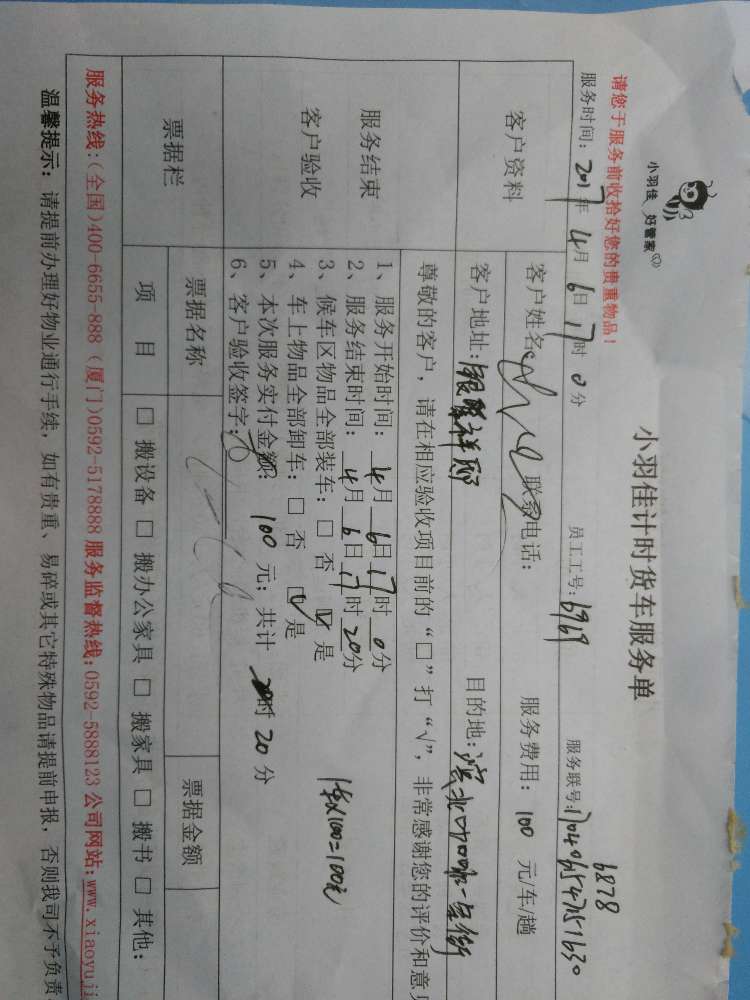 小羽佳 好管家
小羽佳计时货车服务单
请您于服务前收拾好您的贵重物品！
6878
服务时间：2017年4月6日17时0分 员工工号：6969 服务联号：
客户资料
客户姓名 联系电话： 服务费用：100 元/车/趟
客户地址：银聚祥邸 目的地：
尊敬的客户，请在相应验收项目前的“□”打“√”，非常感谢您的评价和意见
服务结束
客户验收
1、服务开始时间：4月6日17时0分
2、服务结束时间：4月6日17时20分
3、候车区物品全部装车：□ 否 ☑ 是
4、车上物品全部卸车：□ 否 ☑ 是
5、本次服务实付金额：100 元；共计 时 20 分
6、客户验收签字：
1车×100=100元
票据栏
票据名称 票据金额
项 目 □ 搬设备 □ 搬办公家具 □ 搬家具 □ 搬书 □ 其他：
服务热线：(全国)400-6655-888 (厦门)0592-5178888 服务监督热线：0592-5888123 公司网站：www.xiaoyuji
温馨提示：请提前办理好物业通行手续，如有贵重、易碎或其它特殊物品请提前申报，否则我司不予负责